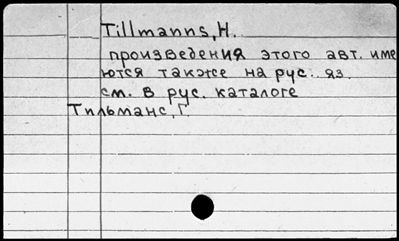 Tillmanns, H.
произведения этого авт. име
ются также на рус. яз.
см. в рус. каталоге
Тильманс, Г.